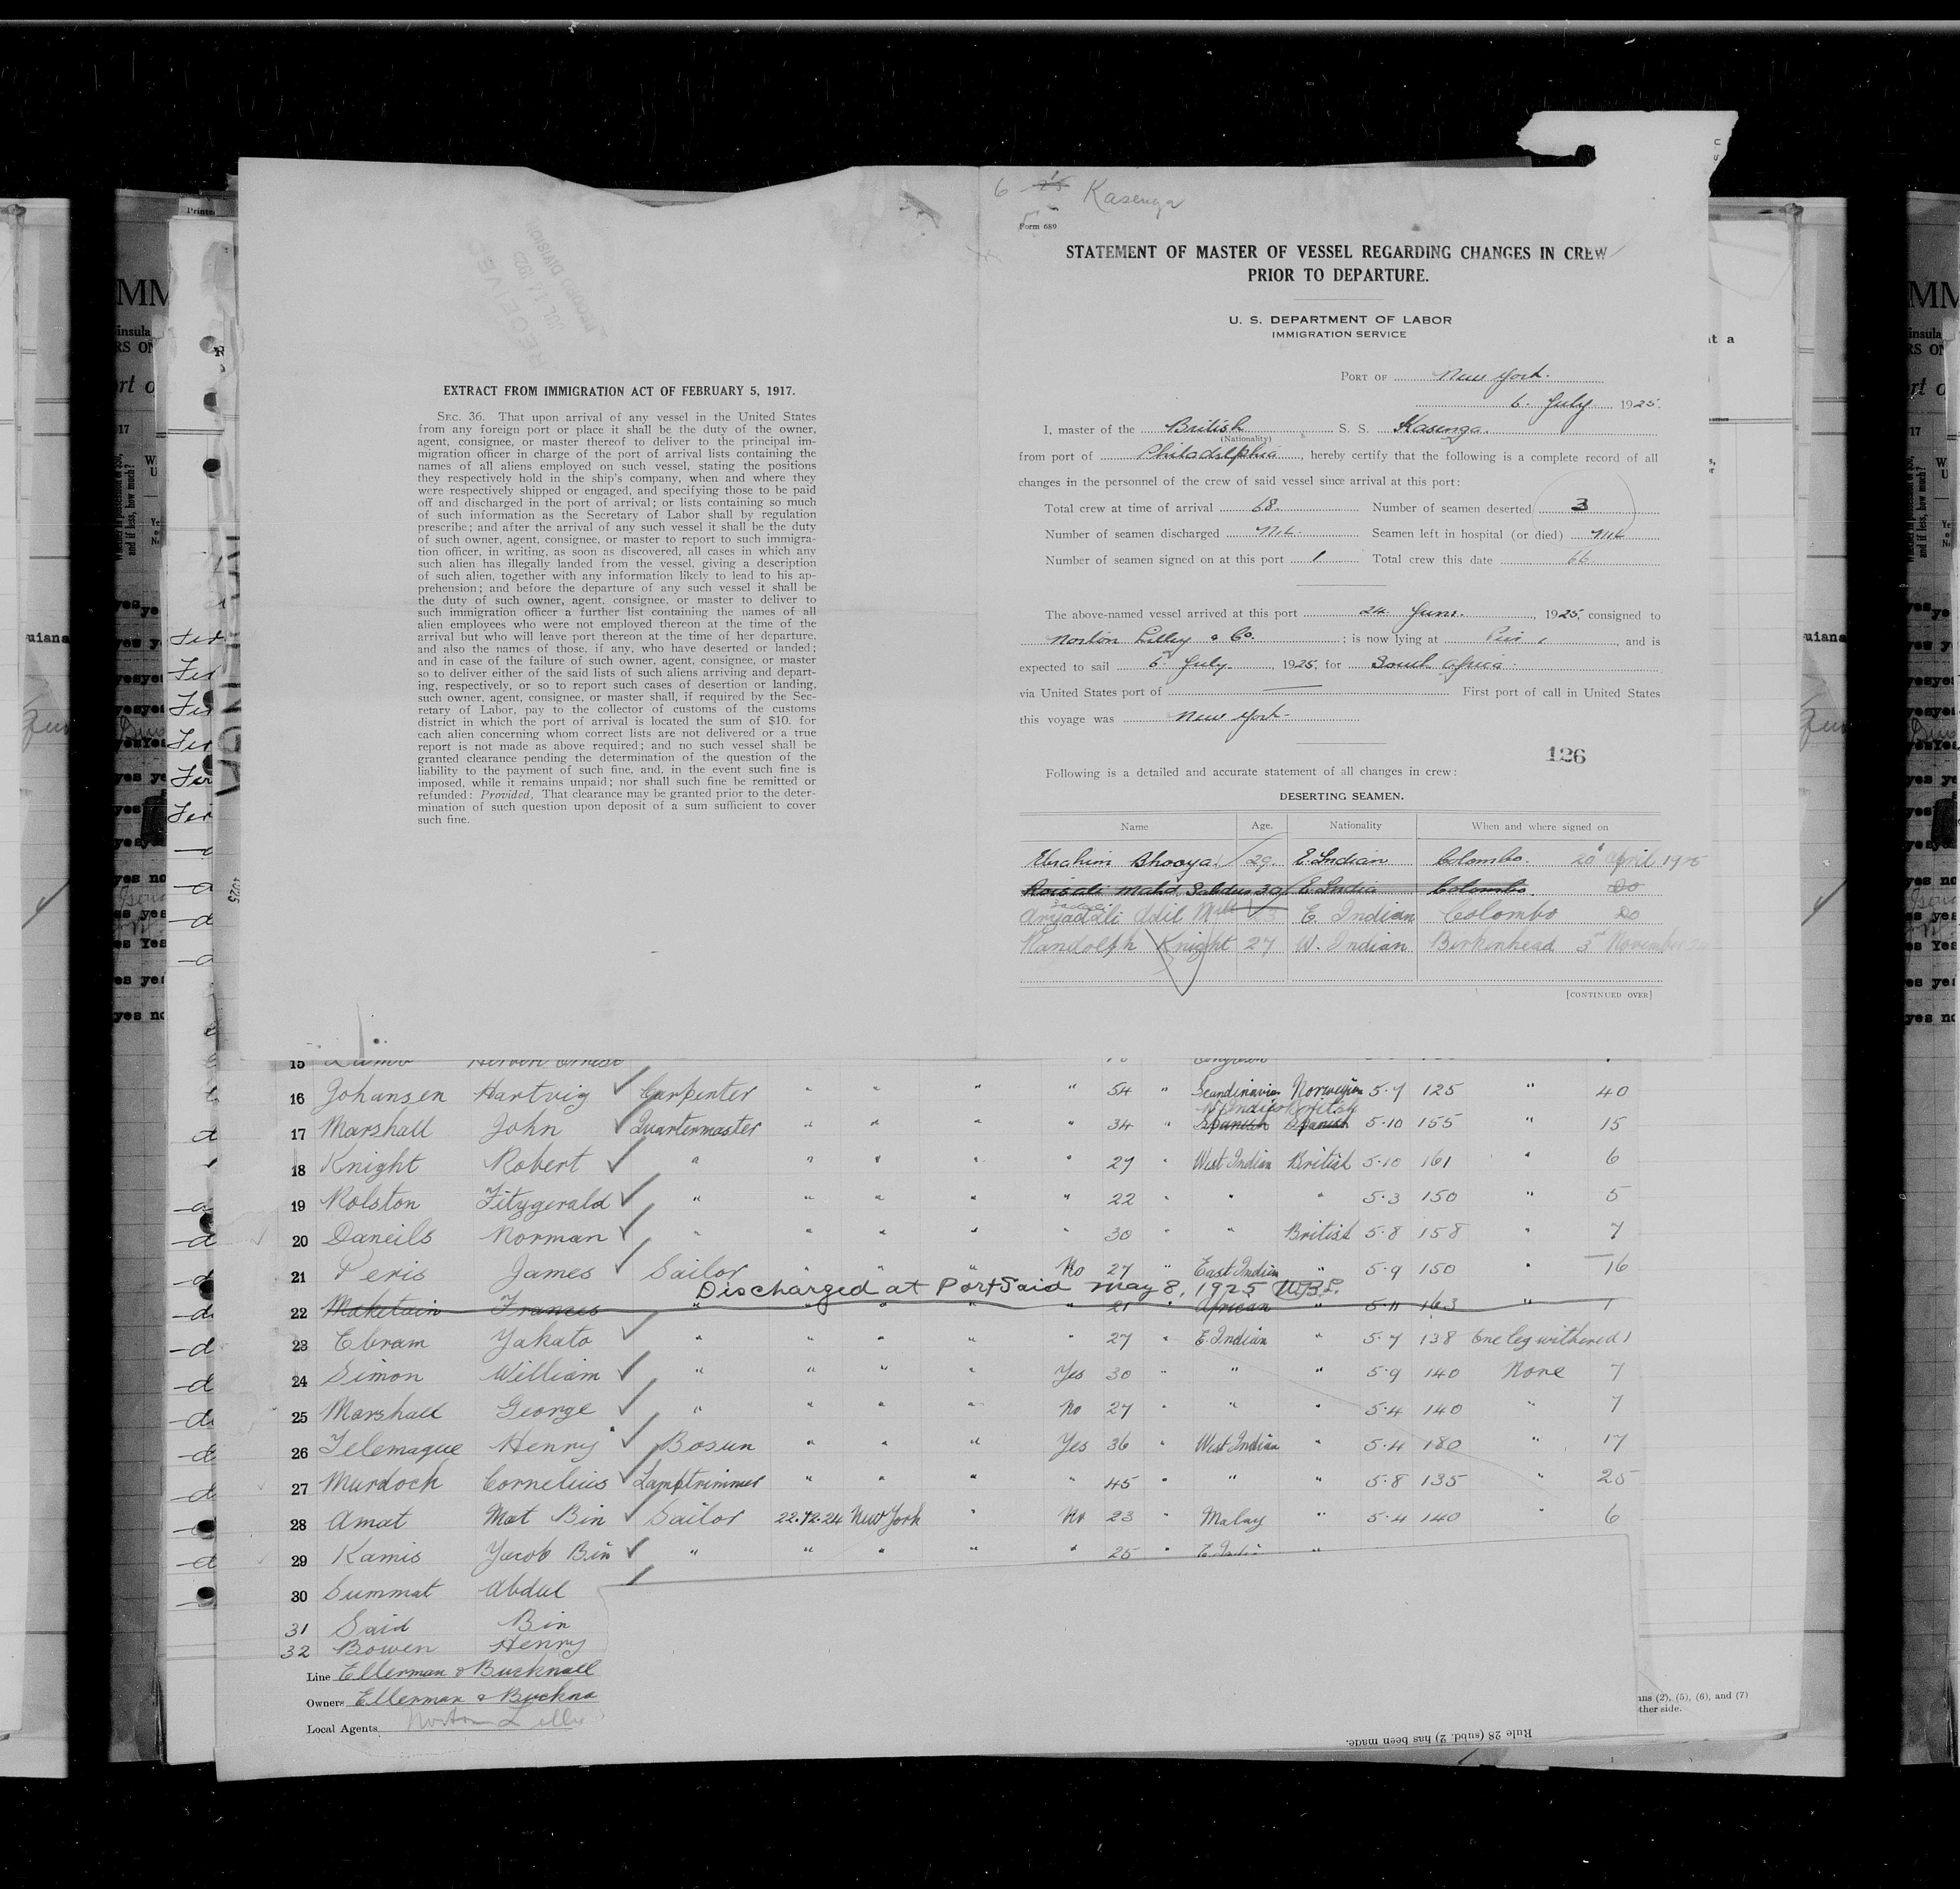 6 Kasenga
Form 689
STATEMENT OF MASTER OF VESSEL REGARDING CHANGES IN CREW
PRIOR TO DEPARTURE.
U. S. DEPARTMENT OF LABOR
IMMIGRATION SERVICE
PORT OF New York.
6. July 1925.
I, master of the British S. S. Kasenga.
(Nationality)
from port of Philadelphia, hereby certify that the following is a complete record of all
changes in the personnel of the crew of said vessel since arrival at this port:
Total crew at time of arrival 68. Number of seamen deserted 3
Number of seamen discharged NIL. Seamen left in hospital (or died) NIL
Number of seamen signed on at this port 1 Total crew this date 66
The above-named vessel arrived at this port 24 June, 1925, consigned to
Norton Lilley & Co. ; is now lying at Pier 1, and is
expected to sail 6. July, 1925, for South Africa.
via United States port of First port of call in United States
this voyage was New York.
126
Following is a detailed and accurate statement of all changes in crew:
DESERTING SEAMEN.
Name Age. Nationality When and where signed on
Ebrahim Bhooya. 29. E. Indian Colombo. 20 April 1925
Mahd. 30 E. India Colombo Do
E. Indian Colombo Do
Randolph Knight 27 W. Indian Berkenhead 3rd November
[CONTINUED OVER]
RECEIVED
JUL 14 1925
RECORD DIVISION
EXTRACT FROM IMMIGRATION ACT OF FEBRUARY 5, 1917.
SEC. 36. That upon arrival of any vessel in the United States
from any foreign port or place it shall be the duty of the owner,
agent, consignee, or master thereof to deliver to the principal im-
migration officer in charge of the port of arrival lists containing the
names of all aliens employed on such vessel, stating the positions
they respectively hold in the ship's company, when and where they
were respectively shipped or engaged, and specifying those to be paid
off and discharged in the port of arrival; or lists containing so much
of such information as the Secretary of Labor shall by regulation
prescribe; and after the arrival of any such vessel it shall be the duty
of such owner, agent, consignee, or master to report to such immigra-
tion officer, in writing, as soon as discovered, all cases in which any
such alien has illegally landed from the vessel, giving a description
of such alien, together with any information likely to lead to his ap-
prehension; and before the departure of any such vessel it shall be
the duty of such owner, agent, consignee, or master to deliver to
such immigration officer a further list containing the names of all
alien employees who were not employed thereon at the time of the
arrival but who will leave port thereon at the time of her departure,
and also the names of those, if any, who have deserted or landed;
and in case of the failure of such owner, agent, consignee, or master
so to deliver either of the said lists of such aliens arriving and depart-
ing, respectively, or so to report such cases of desertion or landing,
such owner, agent, consignee, or master shall, if required by the Sec-
retary of Labor, pay to the collector of customs of the customs
district in which the port of arrival is located the sum of $10. for
each alien concerning whom correct lists are not delivered or a true
report is not made as above required; and no such vessel shall be
granted clearance pending the determination of the question of the
liability to the payment of such fine, and, in the event such fine is
imposed, while it remains unpaid; nor shall such fine be remitted or
refunded: Provided, That clearance may be granted prior to the deter-
mination of such question upon deposit of a sum sufficient to cover
such fine.
15
16 Johansen Hartvig Carpenter " " " " 54 " Scandinavian Norwegian 5.7 125 " 40
W. Indies British
17 Marshall John Quartermaster " " " " 34 " Spanish Spanish 5.10 155 " 15
18 Knight Robert " " " " " 27 " West Indian British 5.10 161 " 6
19 Rolston Fitzgerald " " " " " 22 " " " 5.3 150 " 5
20 Daneils Norman " " " " " 30 " " British 5.8 158 " 7
21 Peris James Sailor " " " No 27 " East Indian " 5.9 150 " 16
Discharged at Port Said May 8, 1925
22 Maketain Frances " " " " " 21 " African " 5.11 163 " 1
23 Ebram Yakato " " " " " 27 " E. Indian " 5.7 138 One leg withered 1
24 Simon William " " " " Yes 30 " " " 5.9 140 None 7
25 Marshall George " " " " No 27 " " " 5.4 140 " 7
26 Telemaque Henry Bosun " " " Yes 36 " West Indian " 5.4 180 " 17
27 Murdoch Cornelius Lamptrimmer " " " " 45 " " " 5.8 135 " 25
28 Amat Mat Bin Sailor 22.12.24 New York " No 23 " Malay " 5.4 140 " 6
29 Kamis Yacob Bin " " " " " 25 " E. Indian "
30 Summat Abdul
31 Said Bin
32 Bowen Henry
Line Ellerman & Bucknall
Owners Ellerman & Buckna
Local Agents Norton Lilley
ns (2), (5), (6), and (7)
ther side.
Rule 28 (subd. 2) has been made.